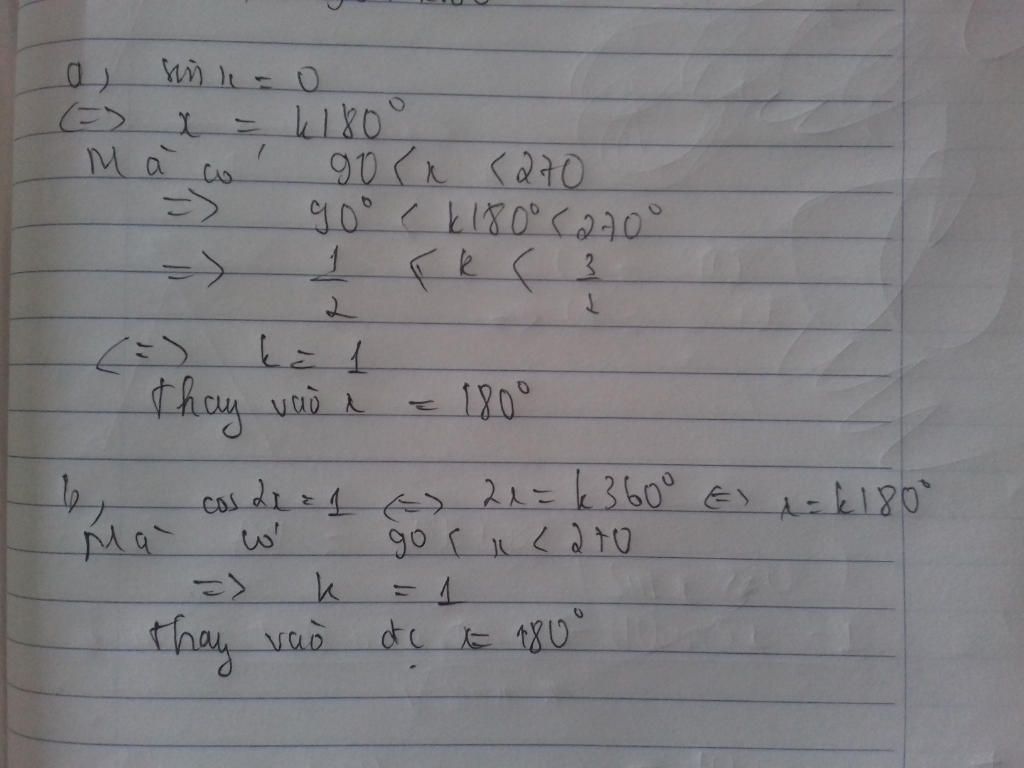 a, sin x = 0
<=> x = k180°
Mà có 90 < x < 270
=> 90° < k180° < 270°
=> 1/2 < k < 3/2
<=> k = 1
thay vào x = 180°
b, cos 2x = 1 <=> 2x = k360° <=> x = k180°
Mà có 90 < x < 270
=> k = 1
thay vào đc x = 180°